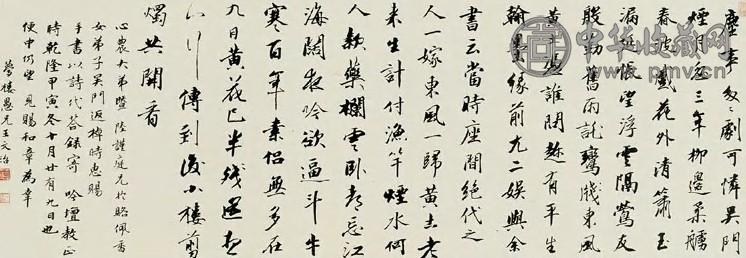 塵事匆匆劇可憐吳門
煙三年柳邊柔艣
春波盛花外清簫玉
漏延悵望浮雲隔鶯友
殷勤舊雨託鸞牋東風
黃誰閒有平生
翰墨緣前九二娛興余
書云當時座間絕代之
人一嫁東風一歸黃土老
來生計付漁竿煙水何
人勒藥欄雲臥都忘江
海闊夜吟欲逼斗牛
寒百年素侶無多在
九日黃花已半殘還想
八行傳到後小樓剪
燭共閒看
心農大弟暨陸謹庭兄於駱佩香
女弟子吳門返棹時惠賜
手書以詩代答錄寄 吟壇教正
時乾隆甲寅冬十月廿有九日也
便中仍望見賜和章為幸
夢樓愚兄王文治
中华收藏网
pmv.cn